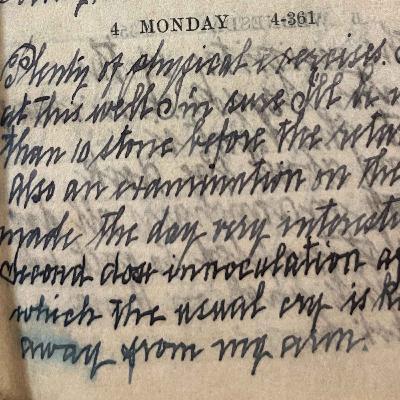 4 MONDAY 4-361
Plenty of physical exercises.
at this well I'm sure I'll be
than 10 stone before the
Also an examination on the
made the day very
Second dose innoculation
which the usual cry is
away from my arm.